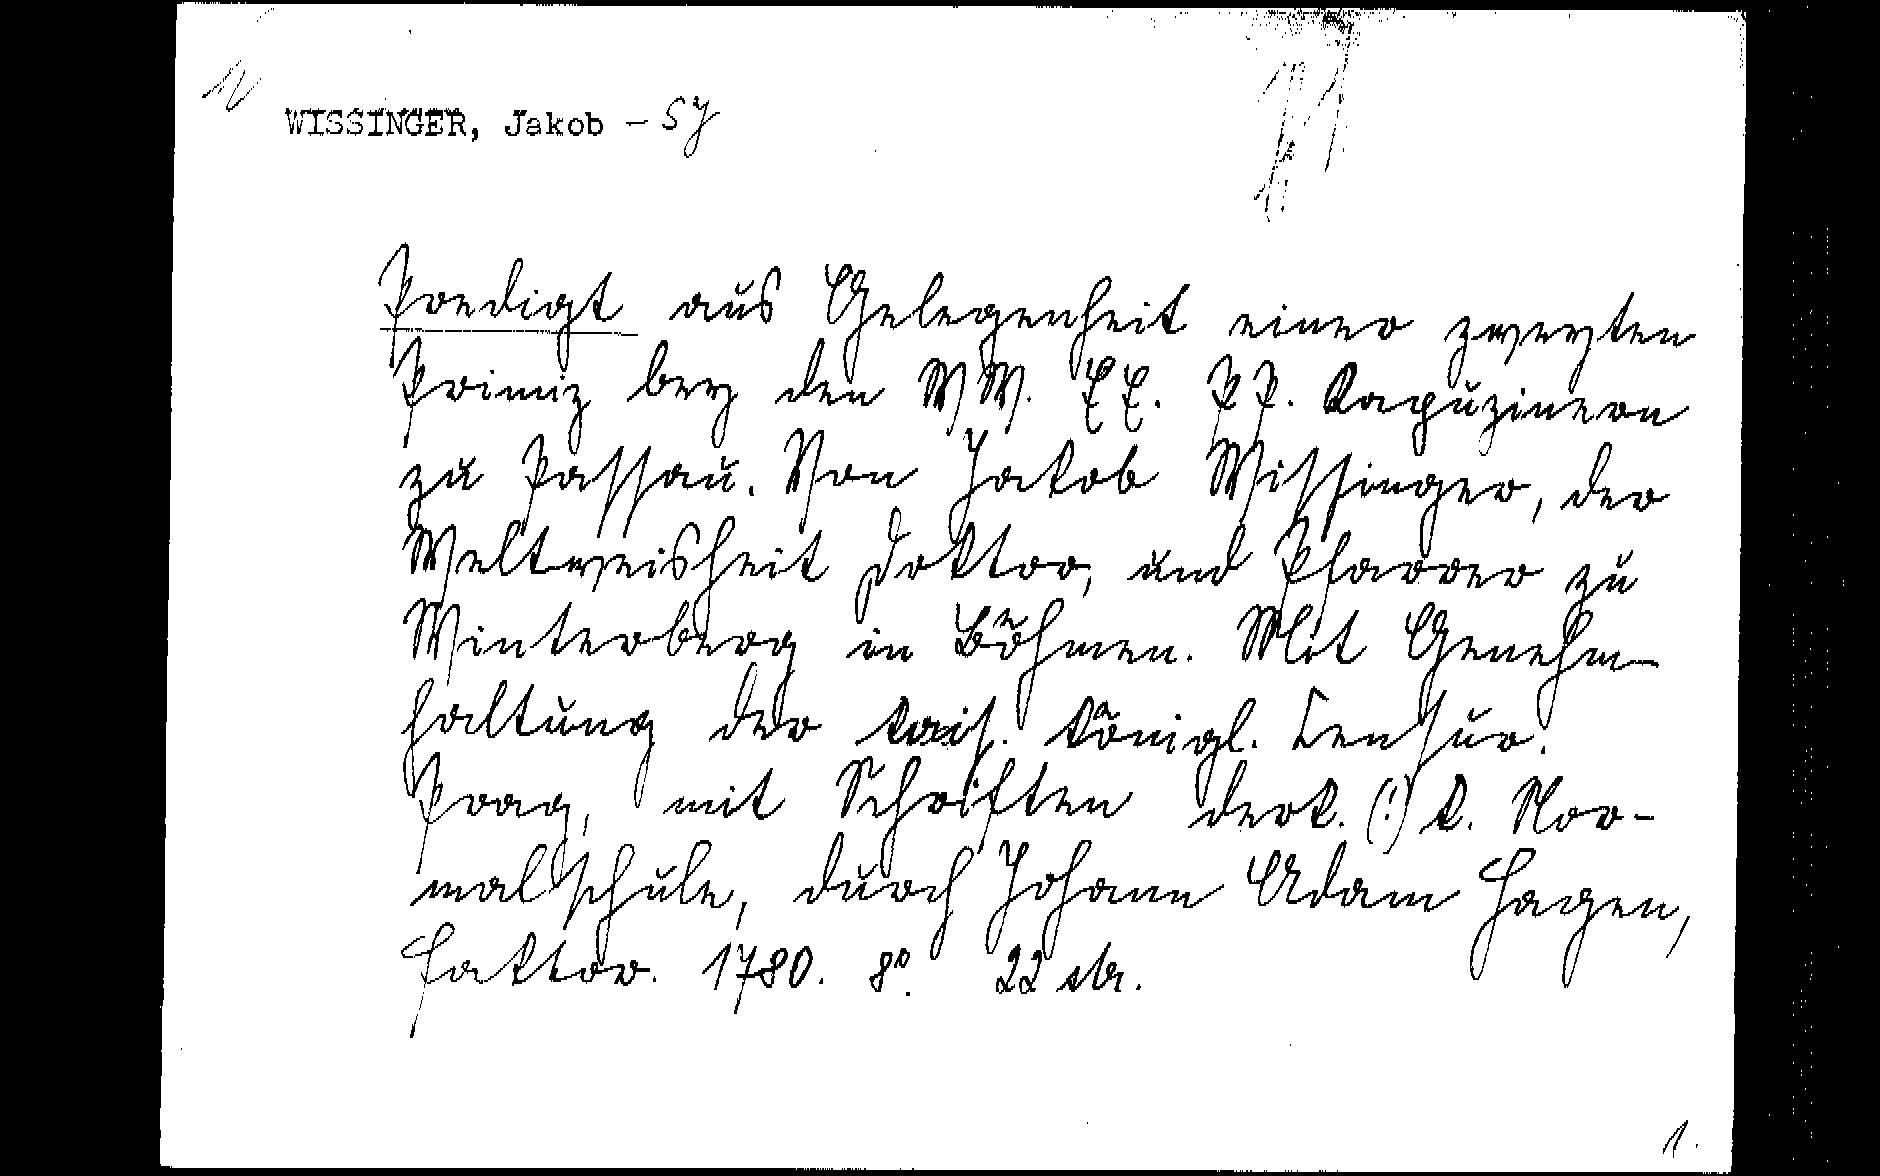 WISSINGER, Jakob – Sy
Predigt aus Gelegenheit einer zweyten
Primiz bey den WW. EE. PP. Kapuzinern
zu Passau. Von Jakob Wissinger, der
Weltweisheit Doktor, und Pfarrer zu
Winterberg in Böhmen. Mit Genehm-
haltung der kais. königl. Censur.
Prag, mit Schriften derk. (!) k. Nor-
malschule, durch Johann Adam Hagen,
Faktor. 1780. 8°. 22 str.
1.